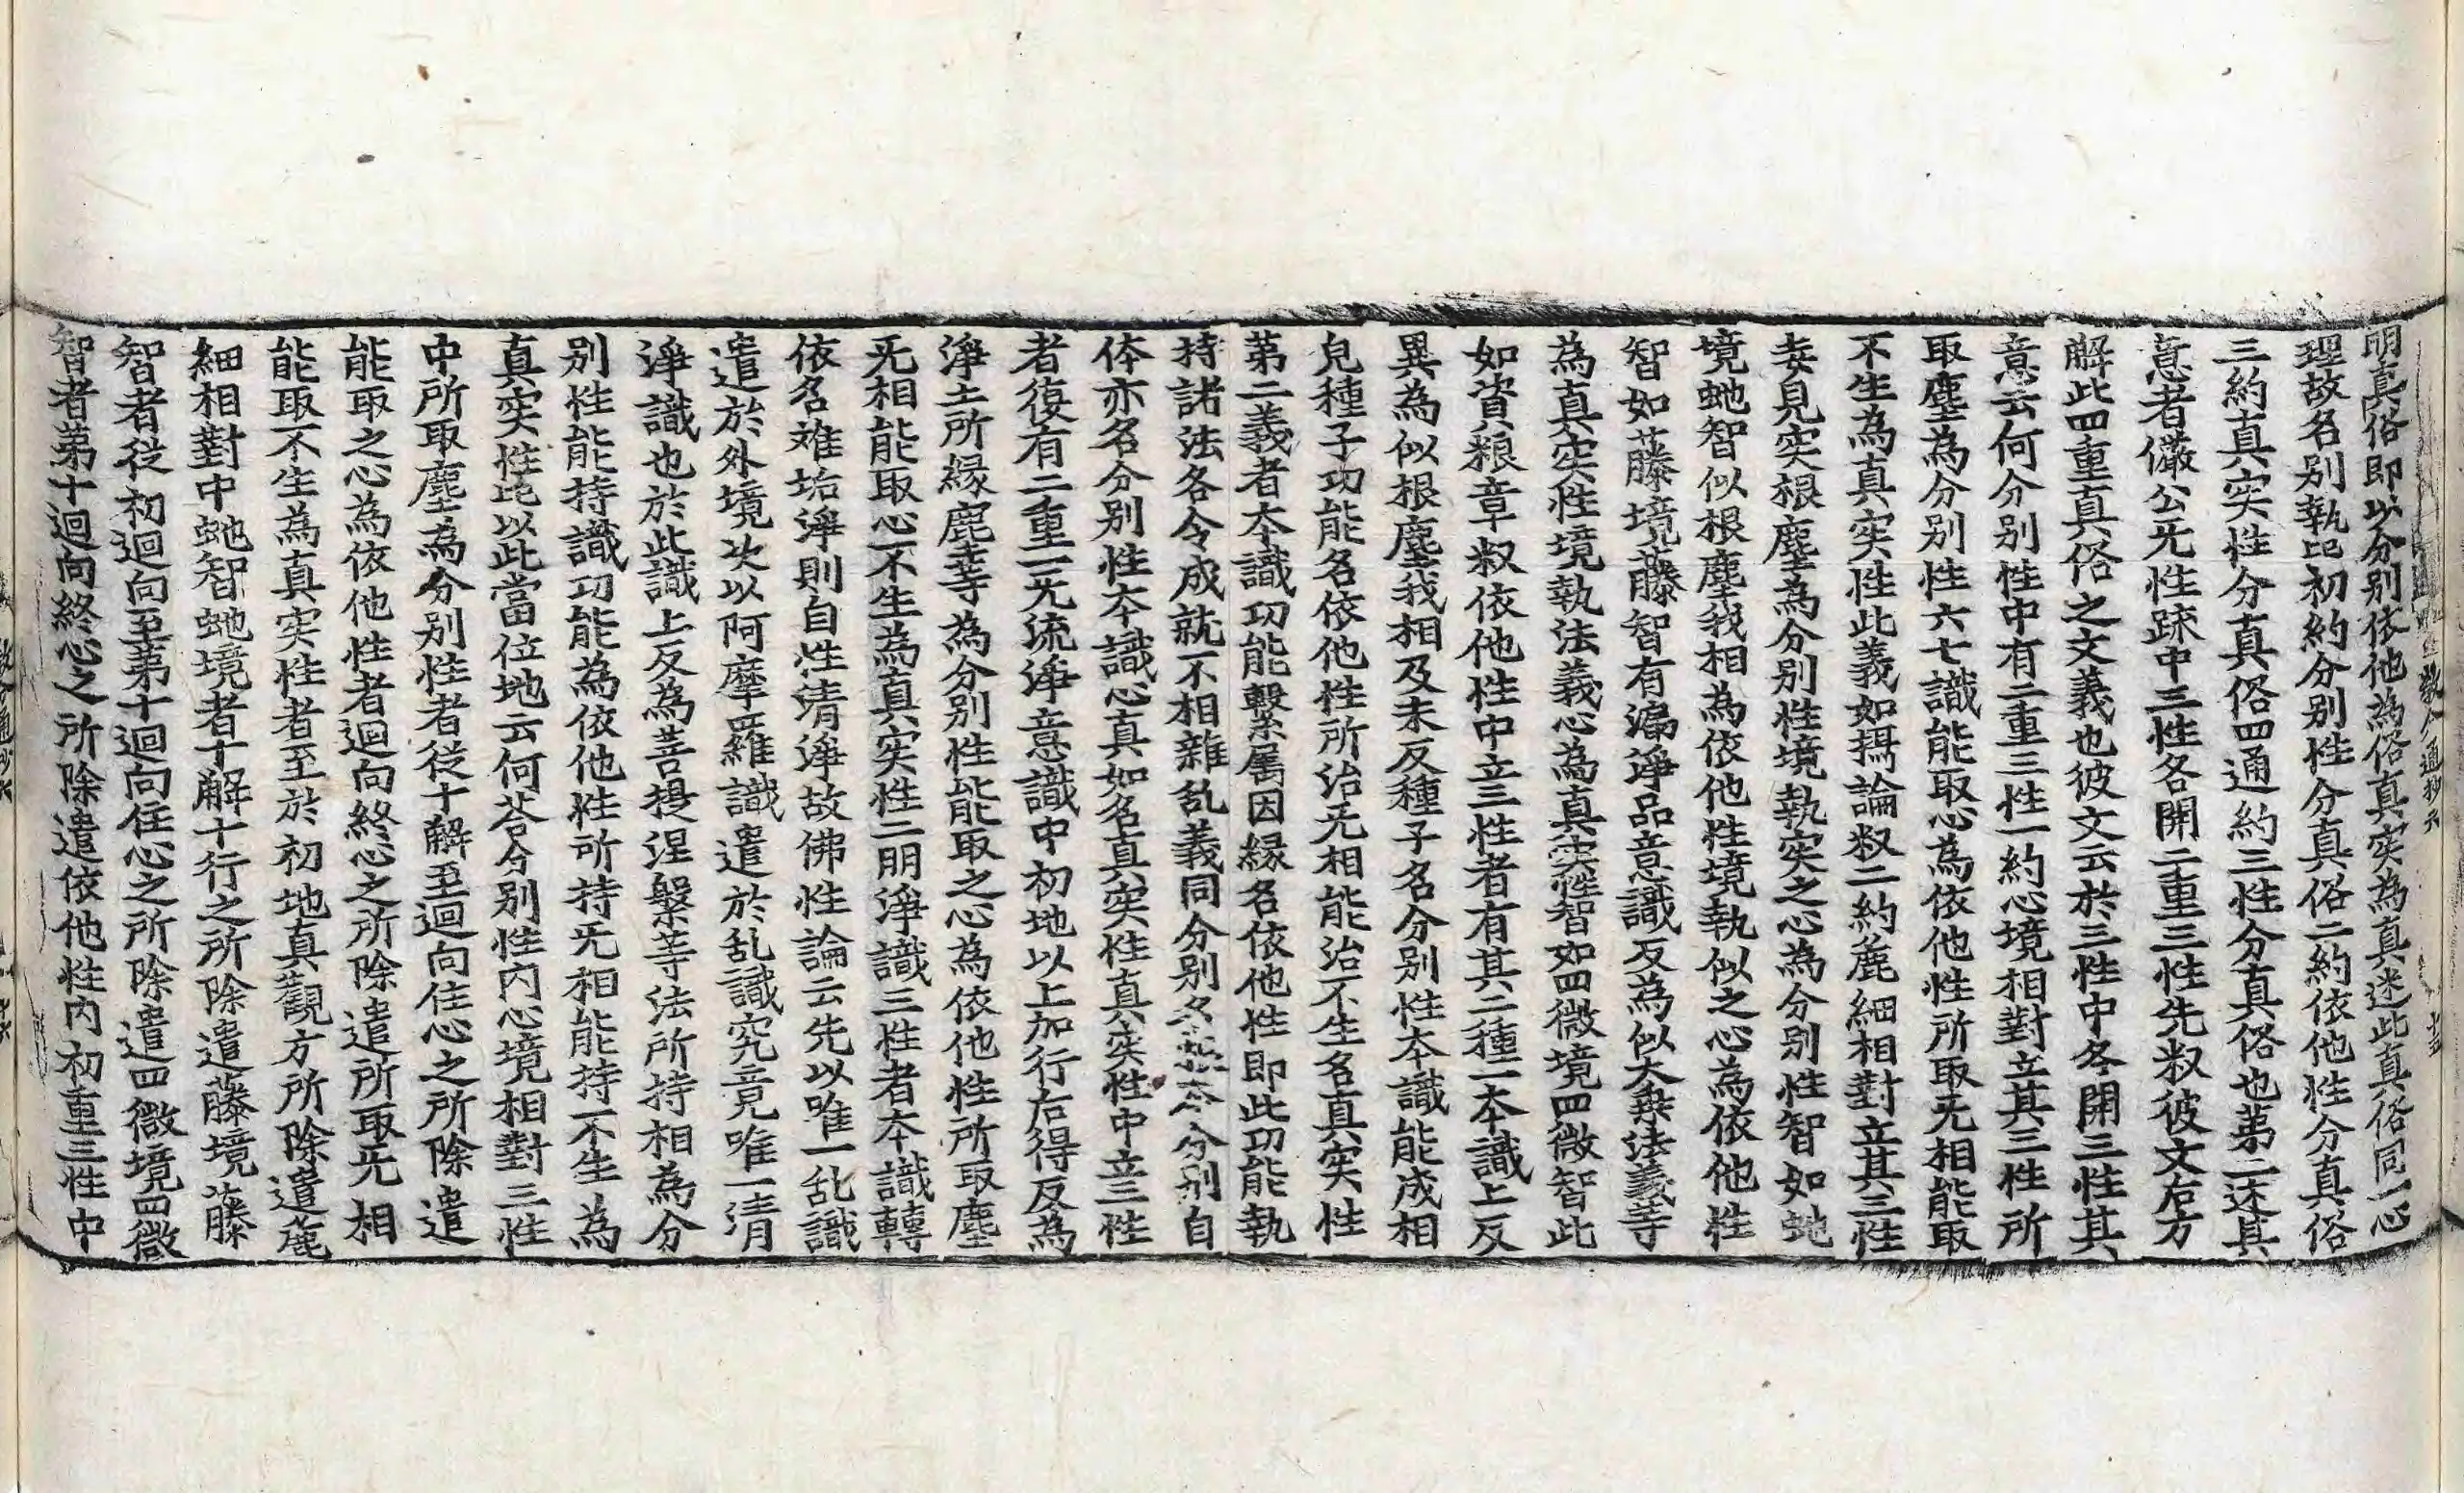 明真俗即以分别依他為俗真实為真迷此真俗同一心
理故名别執也初約分别性分真俗二約依他性分真俗
三約真实性分真俗四通約三性分真俗也苐二述其
意者儼公无性䟽中三性各開二重三性先叙彼文后方
解此四重真俗之文義也彼文云於三性中各開三性其
意云何分别性中有二重三性一約心境相對立其三性所
取塵為分别性六七識能取心為依他性所取无相能取
不生為真实性此義如揭論叙二約麁細相對立其三性
妄見实根塵為分别性境執实之心為分别性智如虵
境虵智似根塵我相為依他性境執似之心為依他性
智如藤境藤智有漏淨品意識反為似大乗法義等
為真实性境執法義心為真实性智如四微境四微智此
如資粮章叙依他性中立三性者有其二種一夲識上反
異為似根塵我相及未反種子名分别性夲識能成相
皃種子功能名依他性所治无相能治不生名真实性
苐二義者夲識功能繫属因緣名依他性即此功能執
持諸法各令成就不相雜乱義同分别夲分别自
体亦名分别性夲識心真如名真实性真实性中立三性
者復有二重一无流淨意識中初地以上加行后得反為
淨土所緣塵等為分别性能取之心為依他性所取塵
无相能取心不生為真实性二明淨識三性者夲識轉
依名雖垢淨則自性清淨故佛性論云先以唯一乱識
遣於外境次以阿摩羅識遣於乱識究竟唯一清
淨識也於此識上反為菩提涅槃等法所持相為分
别性能持識功能為依他性所持无相能持不生為
真实性比以此當位地云何荅分别性内心境相對三性
中所取塵為分别性者從十解至迴向住心之所除遣
能取之心為依他性者迴向終心之所除遣所取无相
能取不生為真实性者至於初地真觀方所除遣麁
細相對中虵智虵境者十解十行之所除遣藤境藤
智者從初迴向至苐十迴向住心之所除遣四微境四微
智者苐十迴向終心之所除遣依他性内初重三性中